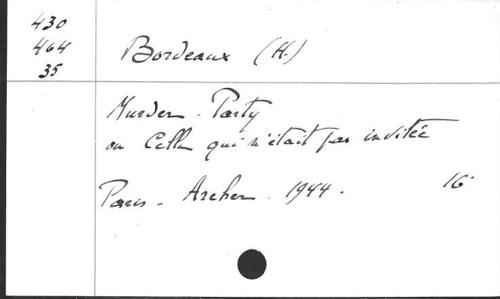 430
464
35
Bordeaux (H.)
Murder-Party
ou Celle qui n'était pas invitée
Paris - Archer - 1944 - 16°